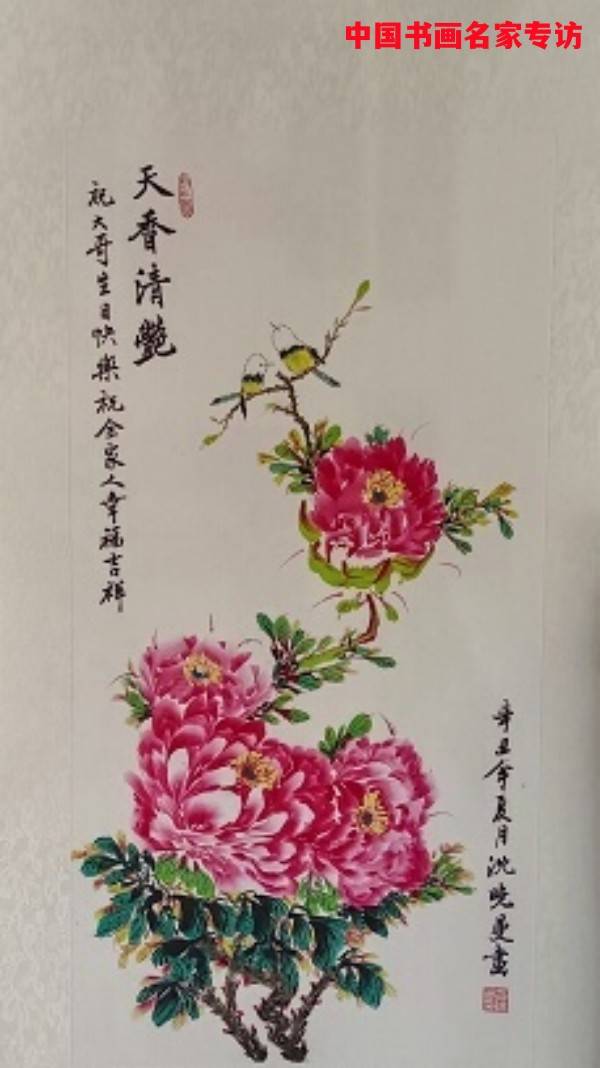 中国书画名家专访
天香清艷
祝大哥生日快樂祝全家人幸福吉祥
辛丑年夏月沈晓曼畫